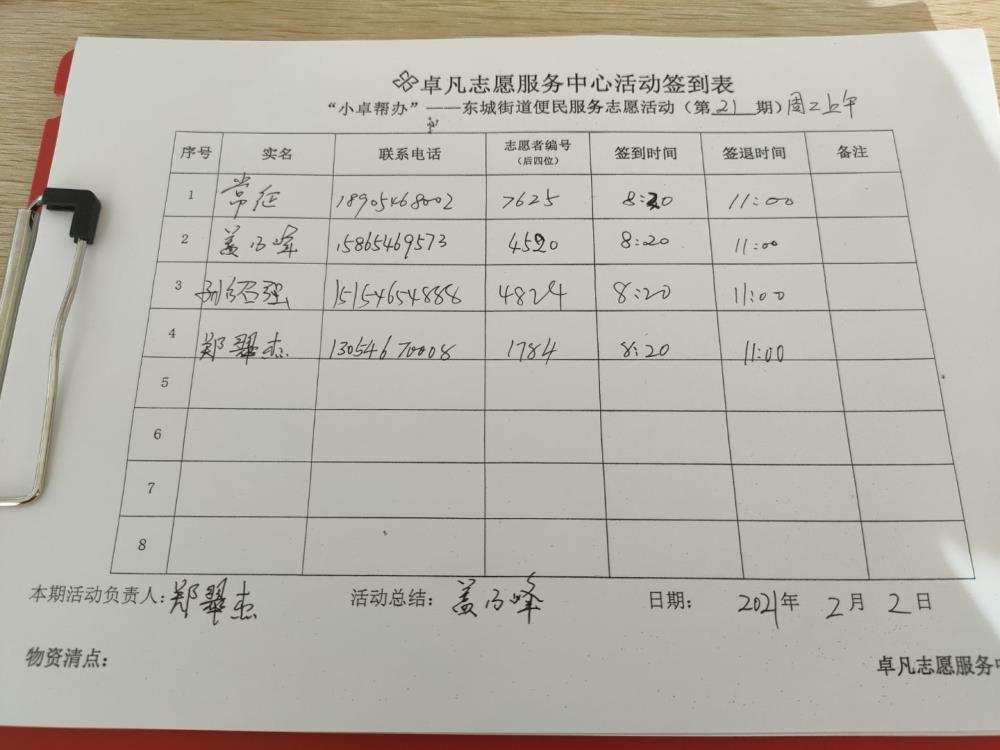 卓凡志愿服务中心活动签到表
“小卓帮办”——东城街道便民服务志愿活动（第 21 期）周二上午
序号 实名 联系电话 志愿者编号（后四位） 签到时间 签退时间 备注
1 常征 18905468002 7625 8:20 11:00
2 盖乃峰 15865469573 4520 8:20 11:00
3 15154654888 4824 8:20 11:00
4 郑翠杰 13054670008 1784 8:20 11:00
5
6
7
8
本期活动负责人：郑翠杰 活动总结：盖乃峰 日期：2021年 2月 2日
物资清点：
卓凡志愿服务中